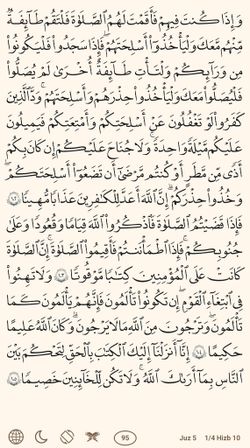 وَإِذَا كُنتَ فِيهِمْ فَأَقَمْتَ لَهُمُ ٱلصَّلَوٰةَ فَلْتَقُمْ طَآئِفَةٌ
مِّنْهُم مَّعَكَ وَلْيَأْخُذُوٓا۟ أَسْلِحَتَهُمْ فَإِذَا سَجَدُوا۟ فَلْيَكُونُوا۟
مِن وَرَآئِكُمْ وَلْتَأْتِ طَآئِفَةٌ أُخْرَىٰ لَمْ يُصَلُّوا۟
فَلْيُصَلُّوا۟ مَعَكَ وَلْيَأْخُذُوا۟ حِذْرَهُمْ وَأَسْلِحَتَهُمْ ۗ وَدَّ ٱلَّذِينَ
كَفَرُوا۟ لَوْ تَغْفُلُونَ عَنْ أَسْلِحَتِكُمْ وَأَمْتِعَتِكُمْ فَيَمِيلُونَ
عَلَيْكُم مَّيْلَةً وَٰحِدَةً ۚ وَلَا جُنَاحَ عَلَيْكُمْ إِن كَانَ بِكُمْ
أَذًى مِّن مَّطَرٍ أَوْ كُنتُم مَّرْضَىٰٓ أَن تَضَعُوٓا۟ أَسْلِحَتَكُمْ ۖ
وَخُذُوا۟ حِذْرَكُمْ ۗ إِنَّ ٱللَّهَ أَعَدَّ لِلْكَٰفِرِينَ عَذَابًا مُّهِينًا ١٠٢
فَإِذَا قَضَيْتُمُ ٱلصَّلَوٰةَ فَٱذْكُرُوا۟ ٱللَّهَ قِيَٰمًا وَقُعُودًا وَعَلَىٰ
جُنُوبِكُمْ ۚ فَإِذَا ٱطْمَأْنَنتُمْ فَأَقِيمُوا۟ ٱلصَّلَوٰةَ ۚ إِنَّ ٱلصَّلَوٰةَ
كَانَتْ عَلَى ٱلْمُؤْمِنِينَ كِتَٰبًا مَّوْقُوتًا ١٠٣ وَلَا تَهِنُوا۟
فِى ٱبْتِغَآءِ ٱلْقَوْمِ ۖ إِن تَكُونُوا۟ تَأْلَمُونَ فَإِنَّهُمْ يَأْلَمُونَ كَمَا
تَأْلَمُونَ ۖ وَتَرْجُونَ مِنَ ٱللَّهِ مَا لَا يَرْجُونَ ۗ وَكَانَ ٱللَّهُ عَلِيمًا
حَكِيمًا ١٠٤ إِنَّآ أَنزَلْنَآ إِلَيْكَ ٱلْكِتَٰبَ بِٱلْحَقِّ لِتَحْكُمَ بَيْنَ
ٱلنَّاسِ بِمَآ أَرَىٰكَ ٱللَّهُ ۚ وَلَا تَكُن لِّلْخَآئِنِينَ خَصِيمًا ١٠٥
95 Juz 5 1/4 Hizb 10